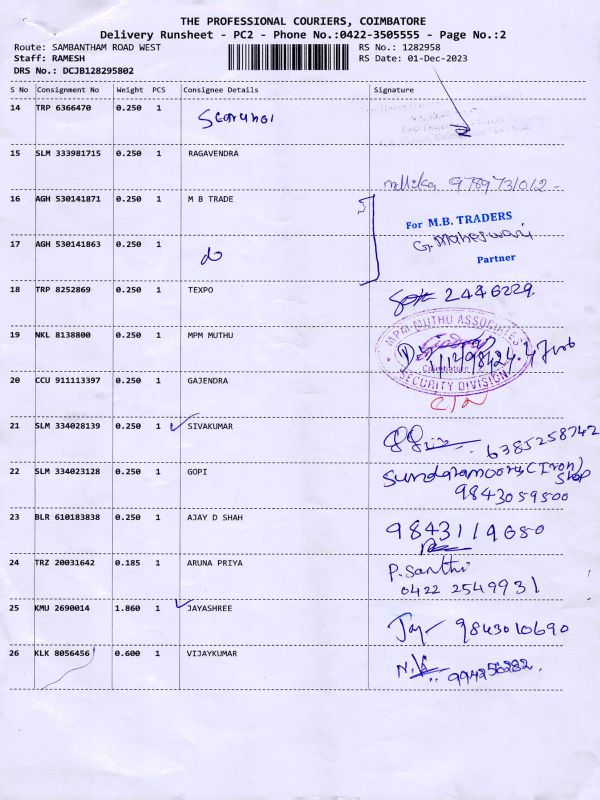 THE PROFESSIONAL COURIERS, COIMBATORE
Delivery Runsheet - PC2 - Phone No.:0422-3505555 - Page No.:2
Route: SAMBANTHAM ROAD WEST RS No.: 1282958
Staff: RAMESH RS Date: 01-Dec-2023
DRS No.: DCJB128295802
S No Consignment No Weight PCS Consignee Details Signature
14 TRP 6366470 0.250 1
15 SLM 333981715 0.250 1 RAGAVENDRA
9789731012
16 AGH 530141871 0.250 1 M B TRADE
For M.B. TRADERS
G. Maheswari
Partner
17 AGH 530141863 0.250 1 do
18 TRP 8252869 0.250 1 TEXPO 2446229
19 NKL 8138800 0.250 1 MPM MUTHU
MPM MUTHU ASSOCIATES
SECURITY DIVISION
20 CCU 911113397 0.250 1 GAJENDRA C/N
21 SLM 334028139 0.250 1 SIVAKUMAR 6385258742
22 SLM 334023128 0.250 1 GOPI Sundaramoorthy (Iron) Shop
9843059500
23 BLR 610183838 0.250 1 AJAY D SHAH 9843119680
24 TRZ 20031642 0.185 1 ARUNA PRIYA P. Santhi
0422 2549931
25 KMU 2690014 1.860 1 JAYASHREE Jay 9843010690
26 KLK 8056456 0.600 1 VIJAYKUMAR N.K 994256282